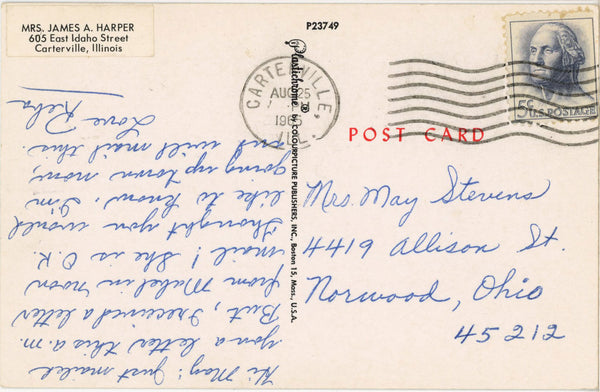 MRS. JAMES A. HARPER
605 East Idaho Street
Carterville, Illinois
P23749
Plastichrome ® by COLOURPICTURE PUBLISHERS, INC., Boston 15, Mass., U.S.A.
CARTERVILLE,
AUG 25
196
5¢ U.S. POSTAGE
POST CARD
Mrs. May Stevens
4419 Allison St.
Norwood, Ohio
45212
Hi May: Just mailed
you a letter this a.m.
But, I received a letter
from Mabel in noon
mail! She is O.K.
Thought you would
like to know. I'm
going up town now,
and will mail this.
Love Reba